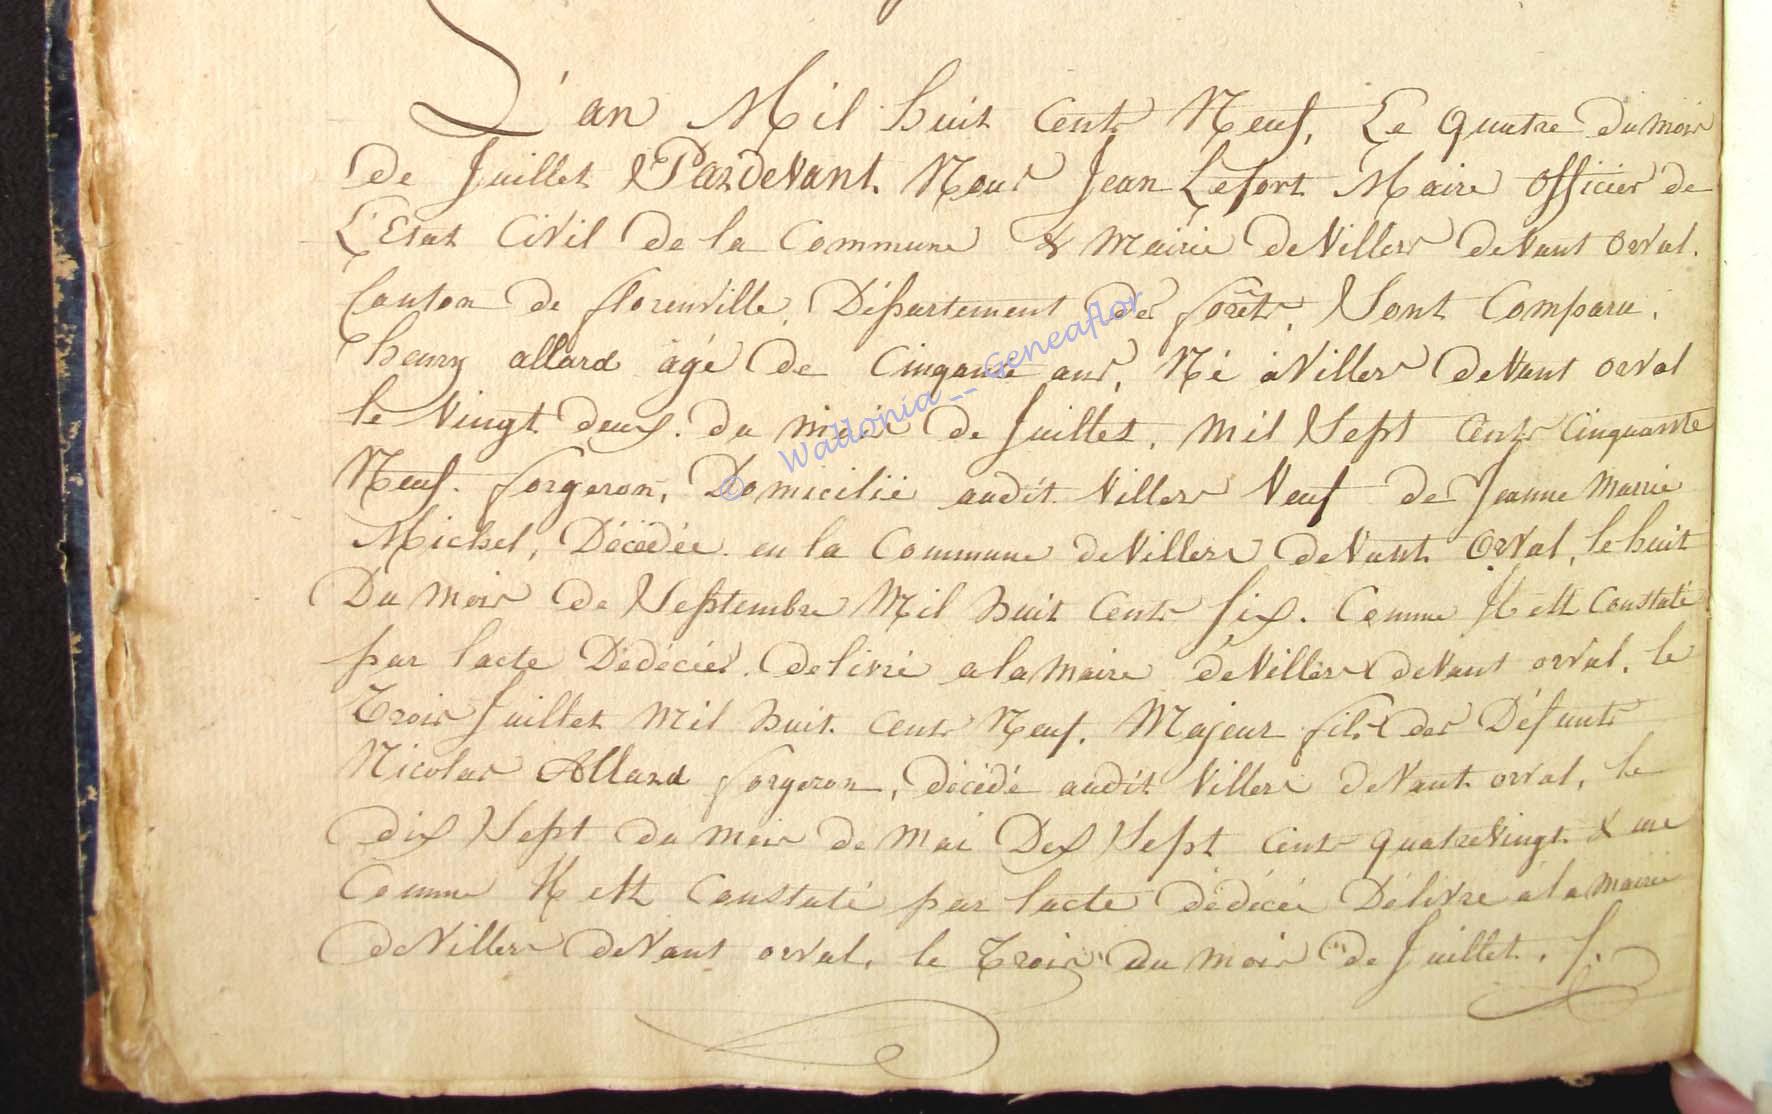 L'an Mil huit Cents Neuf, Le quatre du mois
De Juillet Pardevant Nous Jean Lefort Maire officier de
L'Etat Civil de la Commune & Mairie de Villers devant orval.
Canton de florenville, Département des forêts, Sont Comparu,
henry allard agé de Cinquante ans, Né à Villers devant orval
le Vingt deux du mois de Juillet, mil Sept Cents Cinquante
Neuf. forgeron, Domicilié audit Villers Veuf de Jeanne Marie
Michel, Décédée en la Commune de Villers devant Orval, le huit
Du mois de Septembre Mil huit Cents Six. Comme Il est Constaté
par l'acte Dédécées delivré a la maire de Villers devant orval, le
Trois Juillet Mil huit Cents Neuf, Majeur fils des Défunts
Nicolas Allard forgeron, décédé audit Villers devant orval, le
dix Sept du mois de Mai Dix Sept Cents quatre Vingt & un
Comme Il est Constaté par l'acte dédécée Délivre a la mairie
de Villers devant orval, le Trois du mois de Juillet.
© Wallonia -- Geneaflor